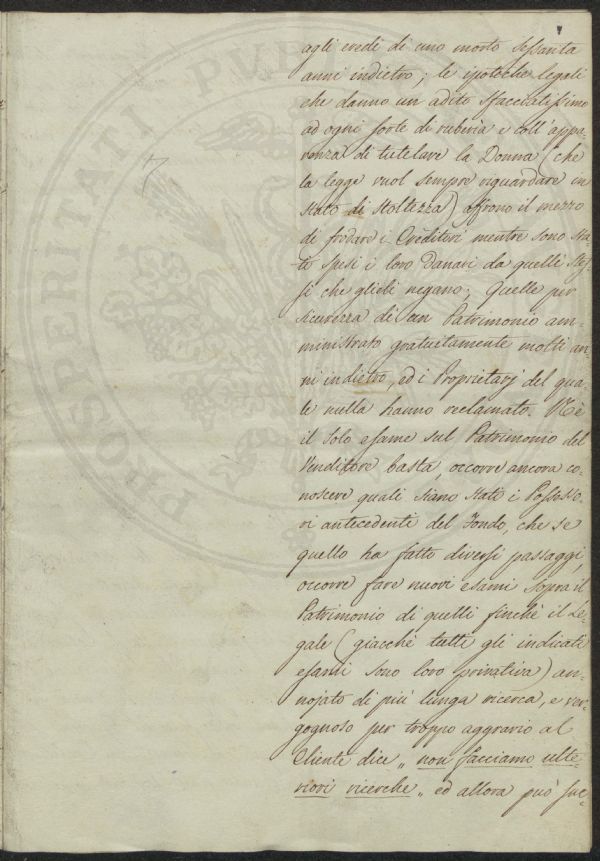 agli eredi di uno morto sessanta
anni indietro; le ipoteche legali
che danno un adito sfacciatissimo
ad ogni sorte di ruberia e coll'appa-
renza di tutelare la Donna (che
la legge vuol sempre riguardare in
stato di stoltezza) offrono il mezzo
di frodare i Creditori mentre sono sta-
ti spesi i loro danari da quelli stes-
si che glieli negano; Quelle per
sicurezza di un Patrimonio am-
ministrato gratuitamente molti an-
ni indietro, ed i Proprietarj del qua-
le nulla hanno reclamato. Nè
il solo esame sul Patrimonio del
Venditore basta, occorre ancora co-
noscere quali siano stati i Possesso-
ri antecedenti del Fondo, che se
quello ha fatto diversi passaggi,
occorre fare nuovi esami sopra il
Patrimonio di quelli finchè il Le-
gale (giacchè tutti gli indicati
esami sono loro privativa) an-
nojato di più lunga ricerca, e ver-
gognoso per troppo aggravio al
Cliente dice „ non facciamo ulte-
riori ricerche „ ed allora può suc-
PROSPERITATI PUBLICAE